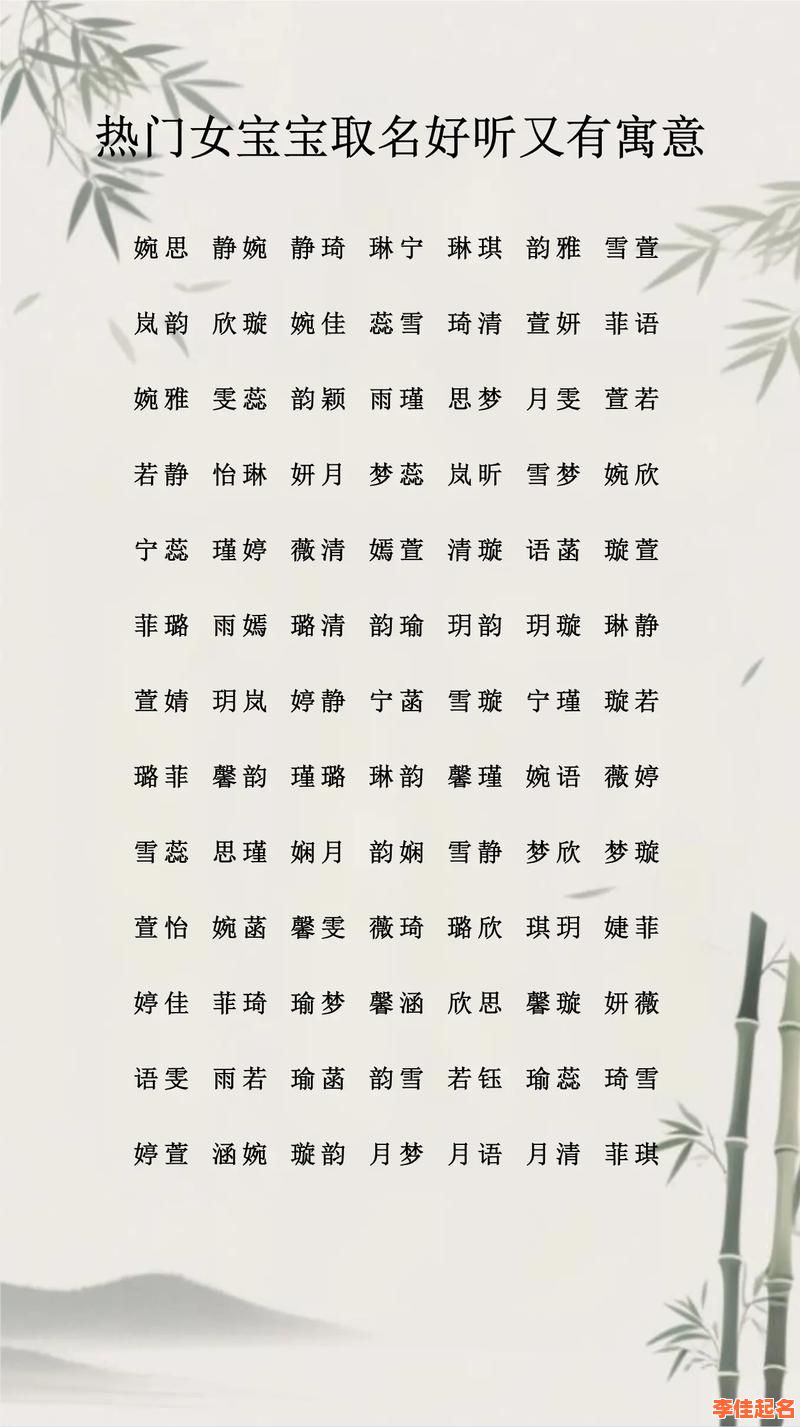 热门女宝宝取名好听又有寓意
婉思 静婉 静琦 琳宁 琳琪 韵雅 雪萱
岚韵 欣璇 婉佳 蕊雪 琦清 萱妍 菲语
婉雅 雯蕊 韵颖 雨瑾 思梦 月雯 萱若
若静 怡琳 妍月 梦蕊 岚昕 雪梦 婉欣
宁蕊 瑾婷 薇清 嫣萱 清璇 语菡 璇萱
菲璐 雨嫣 璐清 韵瑜 玥韵 玥璇 琳静
萱婧 玥岚 婷静 宁菡 雪璇 宁瑾 璇若
璐菲 馨韵 瑾璐 琳韵 馨瑾 婉语 薇婷
雪蕊 思瑾 娴月 韵娴 雪静 梦欣 梦璇
萱怡 婉菡 馨雯 薇琦 璐欣 琪玥 婕菲
婷佳 菲琦 瑜梦 馨涵 欣思 馨璇 妍薇
语雯 雨若 瑜菡 韵雪 若钰 瑜蕊 琦雪
婷萱 涵婉 璇韵 月梦 月语 月清 菲琪
李佳起名